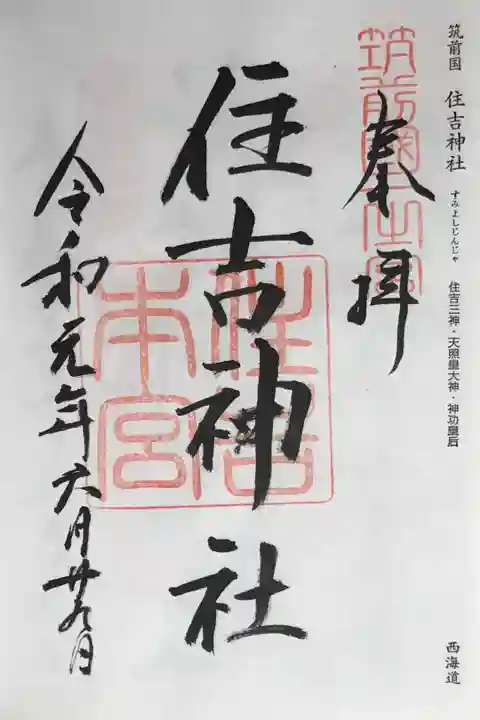 筑前国 住吉神社 すみよしじんじゃ 住吉三神・天照皇大神・神功皇后 西海道
筑前國一之宮
奉拝
住吉神社
住吉本宮
令和元年六月廿九日